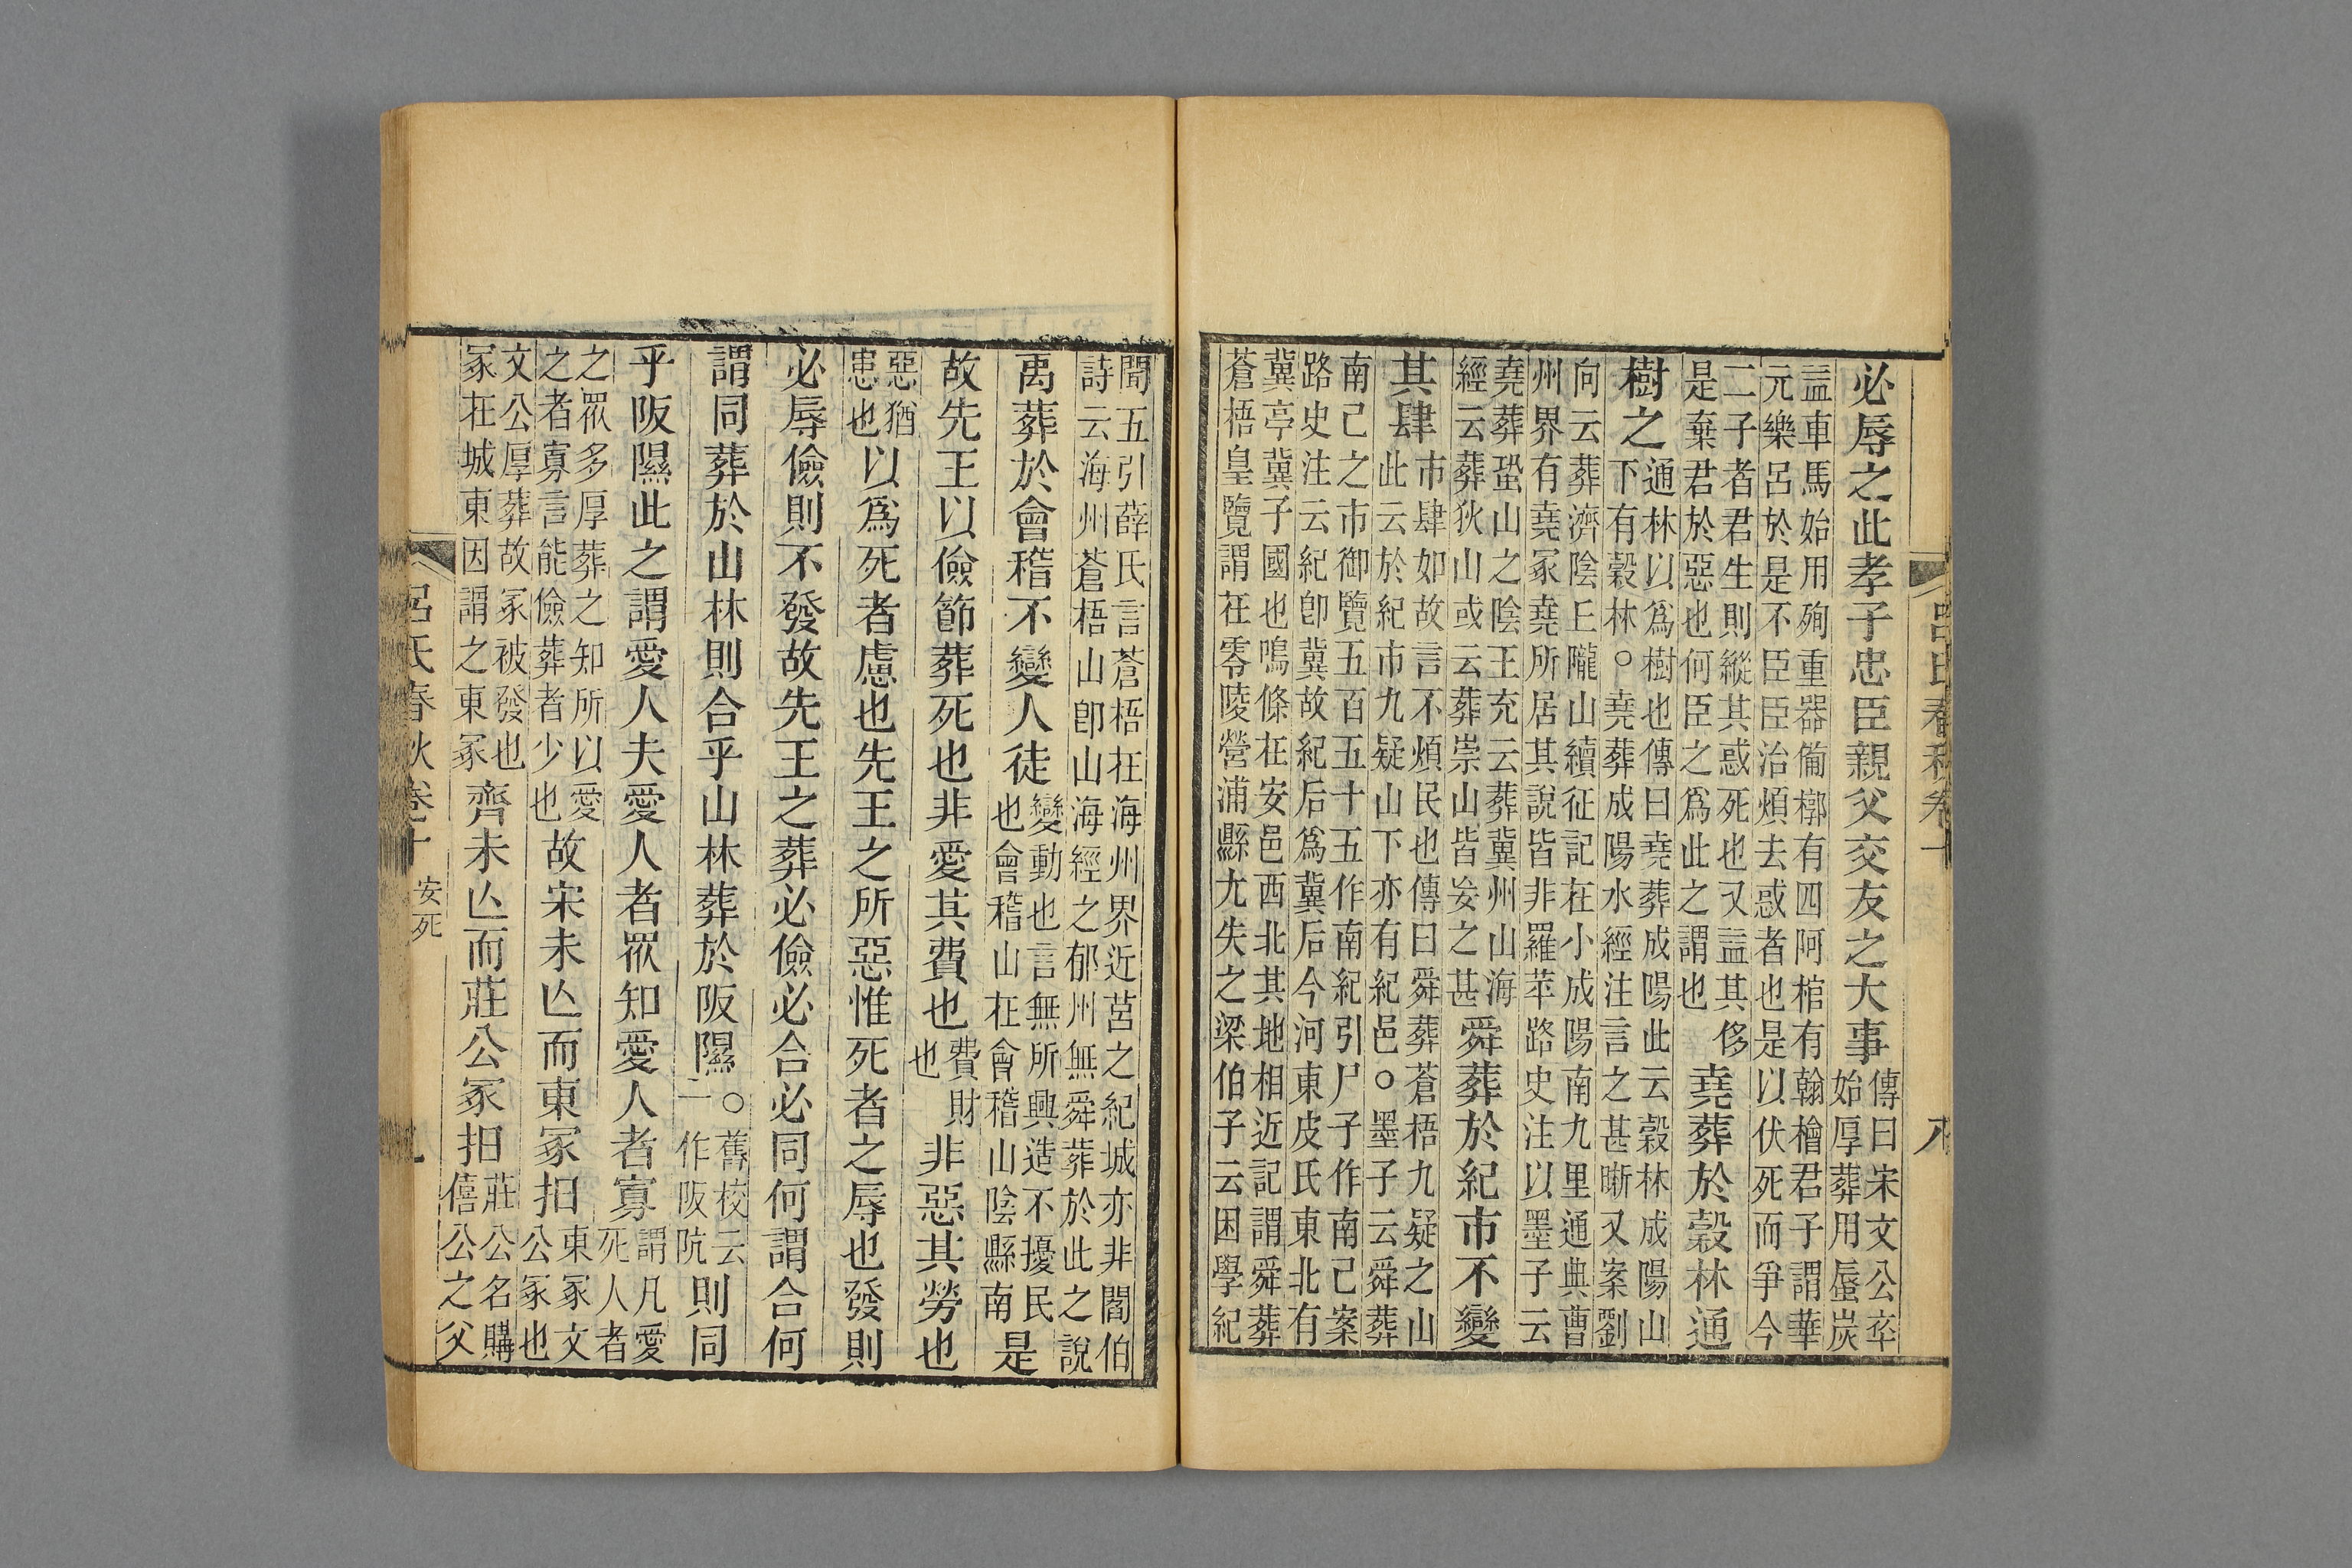 呂氏春秋卷十 八
必辱之此孝子忠臣親父交友之大事傳曰宋文公卒始厚葬用蜃炭
益車馬始用殉重器備槨有四阿棺有翰檜君子謂華元樂呂於是不臣臣治煩去惑者也是以伏死而爭今
二子者君生則縱其惑死也又益其侈是棄君於惡也何臣之爲此之謂也堯葬於穀林通
樹之通林以爲樹也傳曰堯葬成陽此云穀林成陽山下有穀林○堯葬成陽水經注言之甚晰又案劉
向云葬濟陰丘隴山續征記在小成陽南九里通典曹州界有堯冢堯所居其說皆非羅苹路史注以墨子云
堯葬蛩山之陰王充云葬冀州山海經云葬狄山或云葬崇山皆妄之甚舜葬於紀市不變
其肆市肆如故言不煩民也傳曰舜葬蒼梧九疑之山此云於紀市九疑山下亦有紀邑○墨子云舜葬
南己之市御覽五百五十五作南紀引尸子作南己案路史注云紀卽冀故紀后爲冀后今河東皮氏東北有
冀亭冀子國也鳴條在安邑西北其地相近記謂舜葬蒼梧皇覽謂在零陵營浦縣尤失之梁伯子云困學紀
聞五引薛氏言蒼梧在海州界近莒之紀城亦非閻伯詩云海州蒼梧山卽山海經之郁州無舜葬於此之說
禹葬於會稽不變人徒變動也言無所興造不擾民也會稽山在會稽山陰縣南是
故先王以儉節葬死也非愛其費也費財也非惡其勞也
惡猶患也以爲死者慮也先王之所惡惟死者之辱也發則
必辱儉則不發故先王之葬必儉必合必同何謂合何
謂同葬於山林則合乎山林葬於阪隰○舊校云一作阪阬則同
乎阪隰此之謂愛人夫愛人者眾知愛人者寡謂凡愛死人者
之眾多厚葬之知所以愛之者寡言能儉葬者少也故宋未亾而東冢抇東冢文公冢也
文公厚葬故冢被發也冢在城東因謂之東冢齊未亾而莊公冢抇莊公名購僖公之父
呂氏春秋卷十 安死